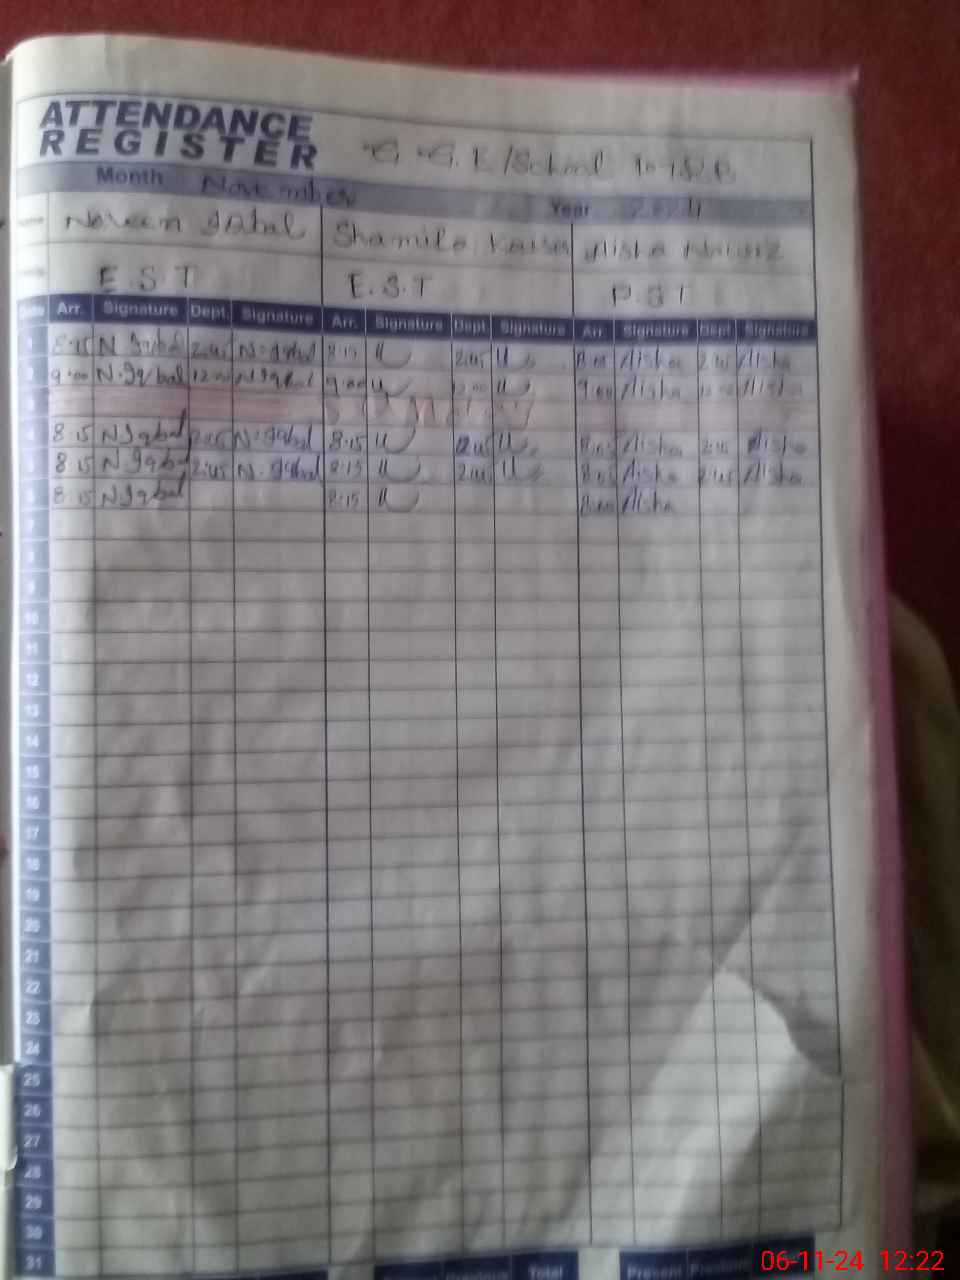 ATTENDANCE
REGISTER
G. G. E/School
Month November
Year 2024
Name Noreen Iqbal Shamila Aisha
E.S.T E.S.T P.S.T
Date Arr. Signature Dept. Signature Arr. Signature Dept. Signature Arr. Signature Dept. Signature
1 8:15 N Iqbal 2:45 N. Iqbal 8:15 2:45 8:00 Aisha 2:45 Aisha
2 9:00 N. Iqbal 12:00 N Iqbal 9:00 12:00 9:00 Aisha 12:00 Aisha
3 SUNDAY
4 8:15 N Iqbal 2:45 N. Iqbal 8:15 2:45 8:05 Aisha 2:45 Aisha
5 8:15 N. Iqbal 2:45 N. Iqbal 8:15 2:45 8:05 Aisha 2:45 Aisha
6 8:15 N Iqbal 8:15 8:00 Aisha
7
8
9
10
11
12
13
14
15
16
17
18
19
20
21
22
23
24
25
26
27
28
29
30
31
Total Present
06-11-24 12:22